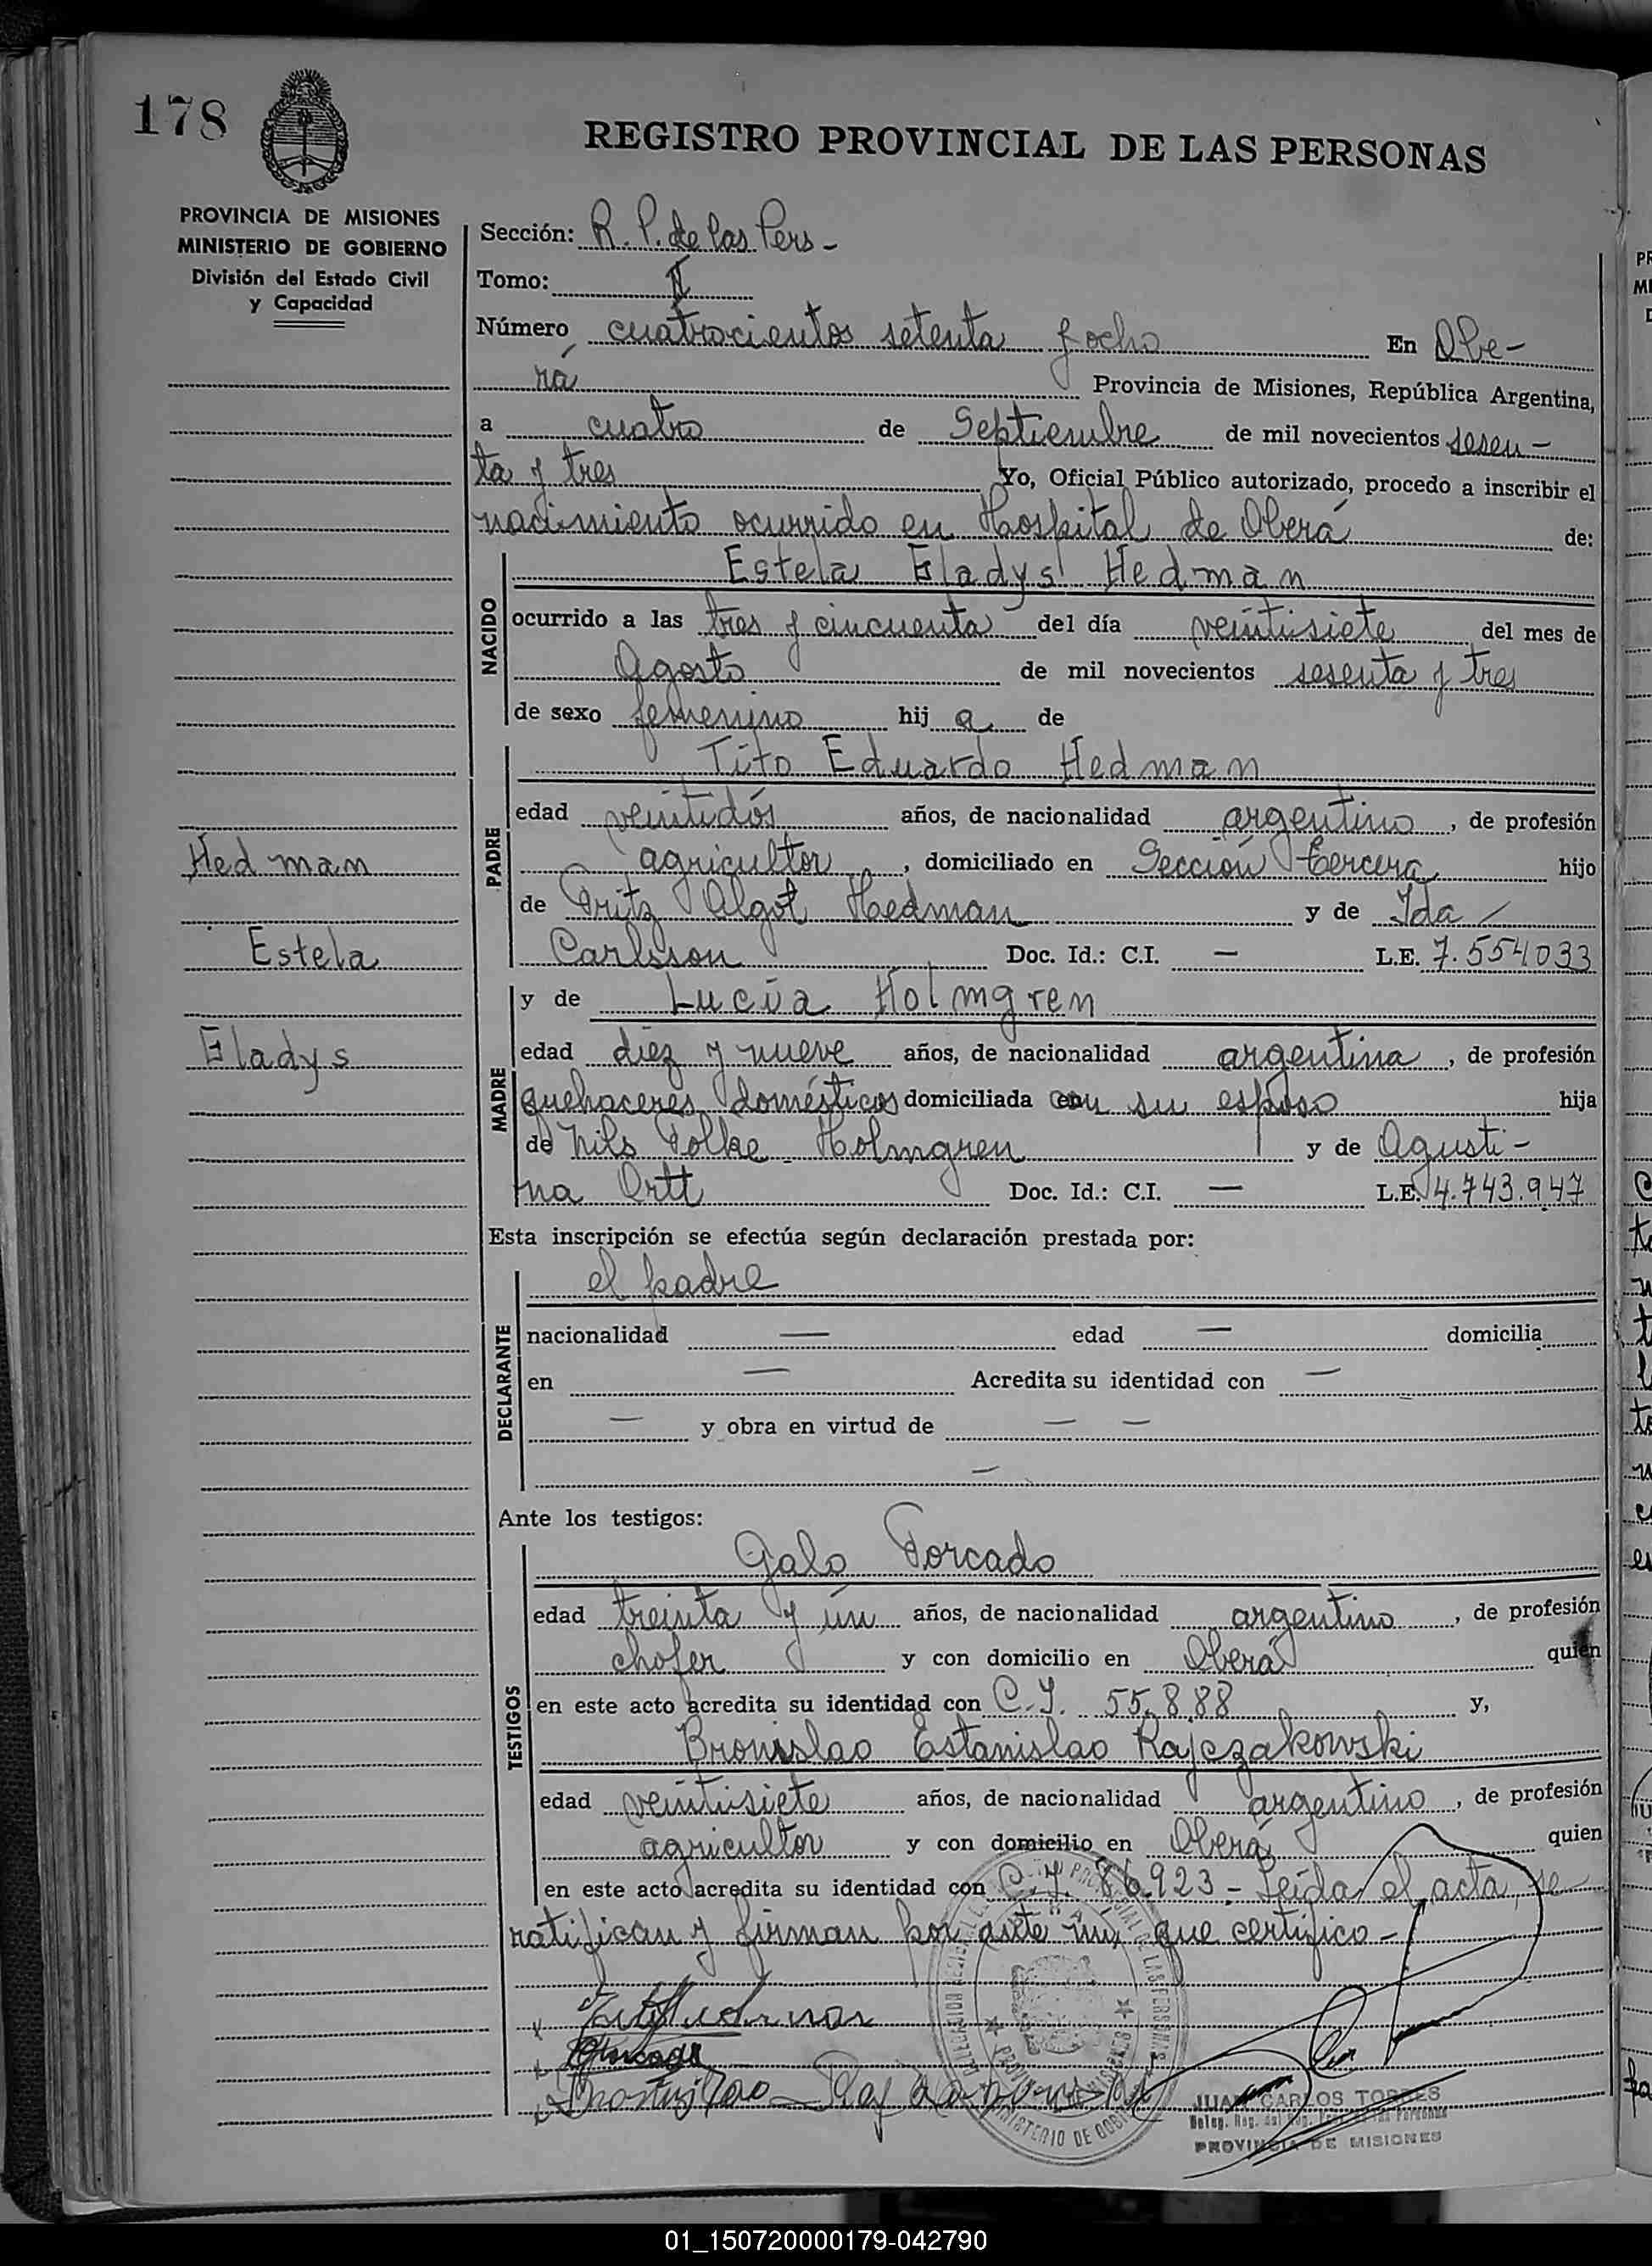 178
REGISTRO PROVINCIAL DE LAS PERSONAS
PROVINCIA DE MISIONES
MINISTERIO DE GOBIERNO
División del Estado Civil
y Capacidad
Sección: R. P. de las Pers -
Tomo: II
Número cuatrocientos setenta y ocho En Obe-
rá Provincia de Misiones, República Argentina,
a cuatro de Septiembre de mil novecientos sesen-
ta y tres Yo, Oficial Público autorizado, procedo a inscribir el
nacimiento ocurrido en Hospital de Oberá de:
NACIDO
Estela Gladys Hedman
ocurrido a las tres y cincuenta del día veintisiete del mes de
Agosto de mil novecientos sesenta y tres
de sexo femenino hij a de
PADRE
Tito Eduardo Hedman
edad veintidós años, de nacionalidad argentino, de profesión
agricultor, domiciliado en Sección tercera hijo
de Fritz Algot Hedman y de Ida
Carlsson Doc. Id.: C.I. — L.E. 7.554033
Hedman
Estela
Gladys
MADRE
y de Lucía Holmgren
edad diez y nueve años, de nacionalidad argentina, de profesión
quehaceres domésticos domiciliada con su esposo hija
de Nils Folke Holmgren y de Agusti-
na Ortt Doc. Id.: C.I. — L.E. 4.743.947
Esta inscripción se efectúa según declaración prestada por:
DECLARANTE
el padre
nacionalidad — edad — domicilia
en — Acredita su identidad con —
— y obra en virtud de — —
—
Ante los testigos:
TESTIGOS
Galo Forcado
edad treinta y ún años, de nacionalidad argentino, de profesión
chofer y con domicilio en Oberá quien
en este acto acredita su identidad con C.I. 55.888 y,
Bronislao Estanislao Rajczakowski
edad veintisiete años, de nacionalidad argentino, de profesión
agricultor y con domicilio en Oberá quien
en este acto acredita su identidad con C.I. 86.923 - Leída el acta, se
ratifican y firman por ante mí, que certifico -
JUAN CARLOS TORRES
PROVINCIA DE MISIONES
01_150720000179-042790